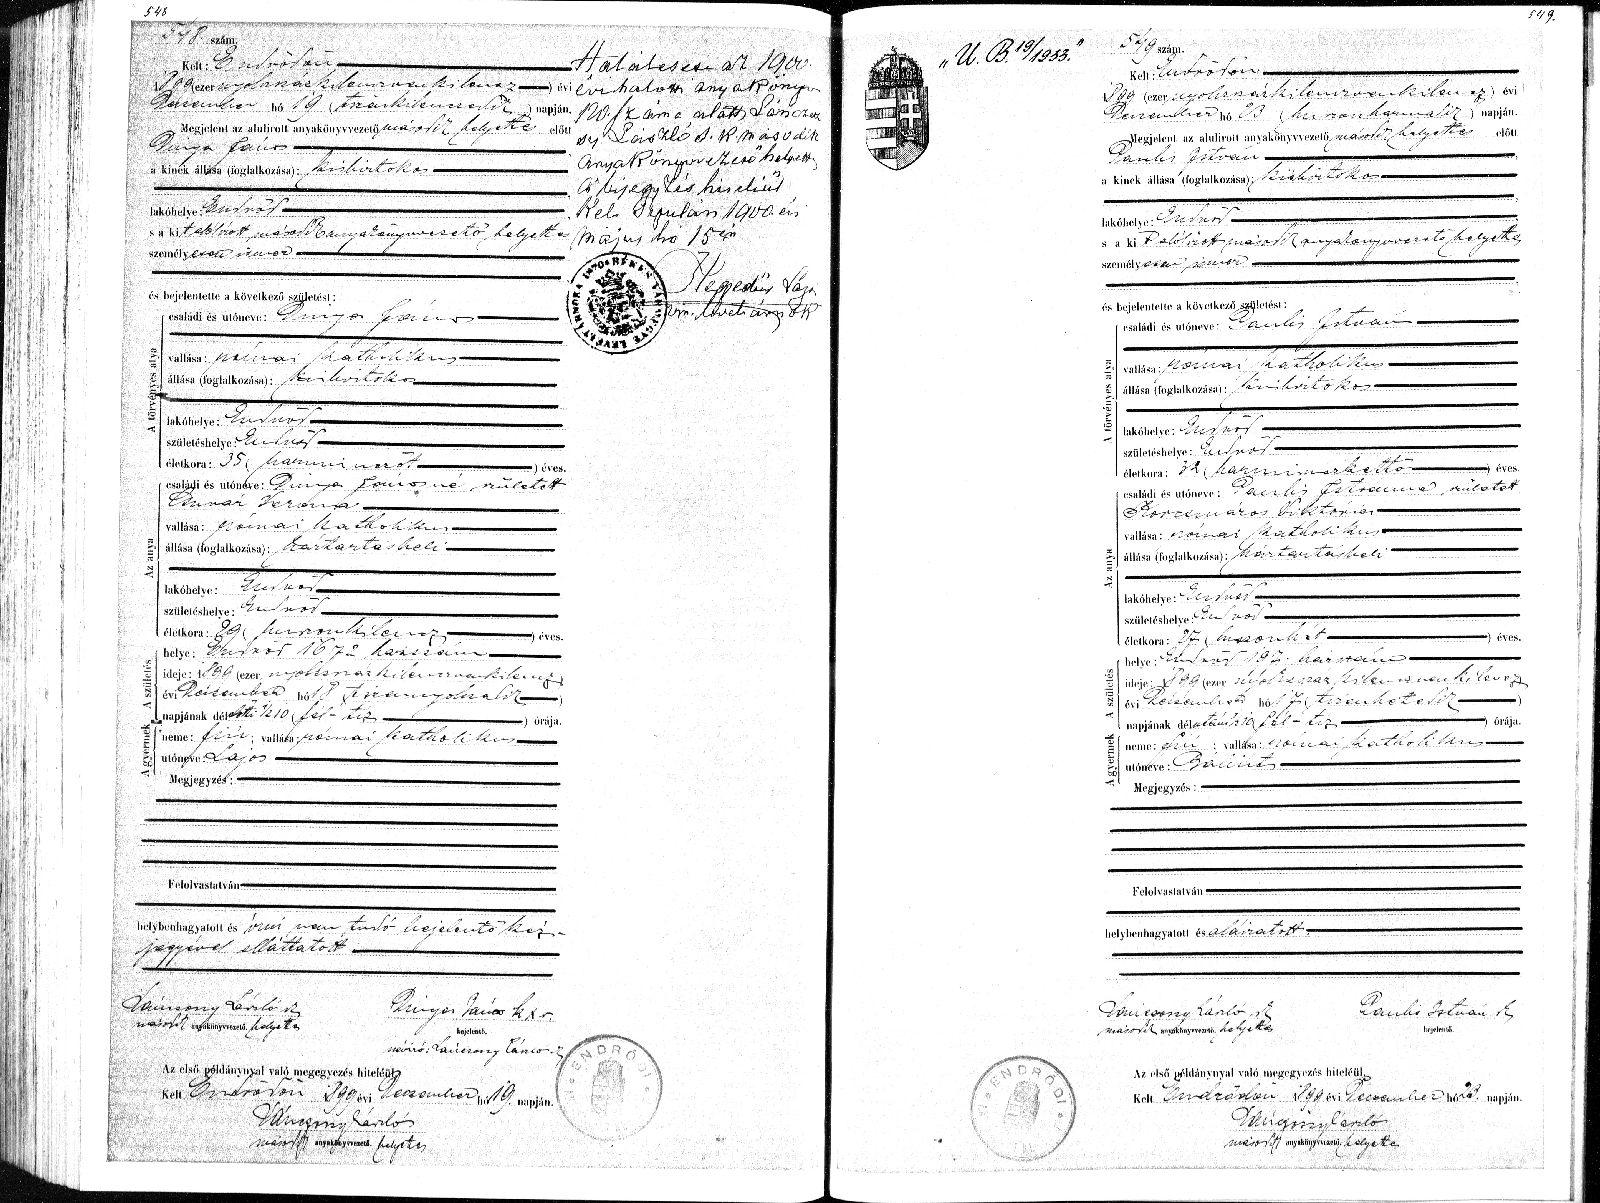 548
548. szám.
Kelt: Endrődön
899 (ezer nyolcszázkilenczvenkilencz) évi
December hó 19 (tizenkilenczedik) napján.
Megjelent az alulirott anyakönyvvezető második helyettes előtt
Dinya János
a kinek állása (foglalkozása): kisbirtokos
lakóhelye: Endrőd
s a kit alólirott második anyakönyvvezető helyettes
személyesen ismer
és bejelentette a következő születést:
A törvényes atya
családi és utóneve: Dinya János
vallása: római katholikus
állása (foglalkozása): kisbirtokos
lakóhelye: Endrőd
születéshelye: Endrőd
életkora: 35 (harminczöt) éves.
Az anya
családi és utóneve: Dinya Jánosné született
Verona
vallása: római katholikus
állása (foglalkozása): háztartásbeli
lakóhelye: Endrőd
születéshelye: Endrőd
életkora: 29 (huszonkilencz) éves.
A születés
helye: Endrőd 1672 házszám
ideje: 899 (ezer nyolcszázkilenczvenkilencz)
évi December hó 18 (tizennyolczadik)
napjának délelőtti ½10 (fél-tíz) órája.
A gyermek
neme: fiú; vallása: római katholikus
utóneve: Lajos
Megjegyzés:
Felolvastatván
helybenhagyatott és írni nem tudó bejelentő kéz-
jegyével elláttatott
Lánczony László sk
második anyakönyvvezető. helyettes
János k x v.
bejelentő.
névíró:
Az első példánynyal való megegyezés hiteléül,
Kelt Endrődön 899 évi December hó 19. napján.
Lánczony László
második anyakönyvvezető. helyettes
ENDRŐDI
Halálesete az 1900.
évi halotti anyakönyv
szám alatt
László s.k. második
anyakönyvvezető helyett.
A bejegyzés hiteléül
Kelt Gyulán 1900 évi
május hó 15én
Hegedűs Lajos
vm. levéltárnok
BÉKÉS VÁRMEGYE LEVÉLTÁRNOKA 1870
549.
"U. B. 19/1933."
549 szám.
Kelt: Endrődön
899 (ezer nyolcszázkilenczvenkilencz) évi
December hó 23 (huszonharmadik) napján.
Megjelent az alulirott anyakönyvvezető második helyettes előtt
Paulis István
a kinek állása (foglalkozása): kisbirtokos
lakóhelye: Endrőd
s a kit alólirott második anyakönyvvezető helyettes
személyesen ismer
és bejelentette a következő születést:
A törvényes atya
családi és utóneve: Paulis István
vallása: római katholikus
állása (foglalkozása): kisbirtokos
lakóhelye: Endrőd
születéshelye: Endrőd
életkora: 32 (harminczkettő) éves.
Az anya
családi és utóneve: Paulis Istvánné született
Korcsmáros Viktoria
vallása: római katholikus
állása (foglalkozása): háztartásbeli
lakóhelye: Endrőd
születéshelye: Endrőd
életkora: 27 (huszonhét) éves.
A születés
helye: Endrőd házszám
ideje: 899 (ezer nyolcszázkilenczvenkilencz
évi December hó 17 (tizenhetedik)
napjának délutáni ½10 (fél-tíz) órája.
A gyermek
neme: fiú; vallása: római katholikus
utóneve: Bálint
Megjegyzés:
Felolvastatván
helybenhagyatott és aláiratott.
Lánczony László sk
második anyakönyvvezető. helyettes
Paulis István sk
bejelentő.
Az első példánynyal való megegyezés hiteléül,
Kelt Endrődön 899 évi December hó 23. napján.
Lánczony László
második anyakönyvvezető. helyettes
ENDRŐDI